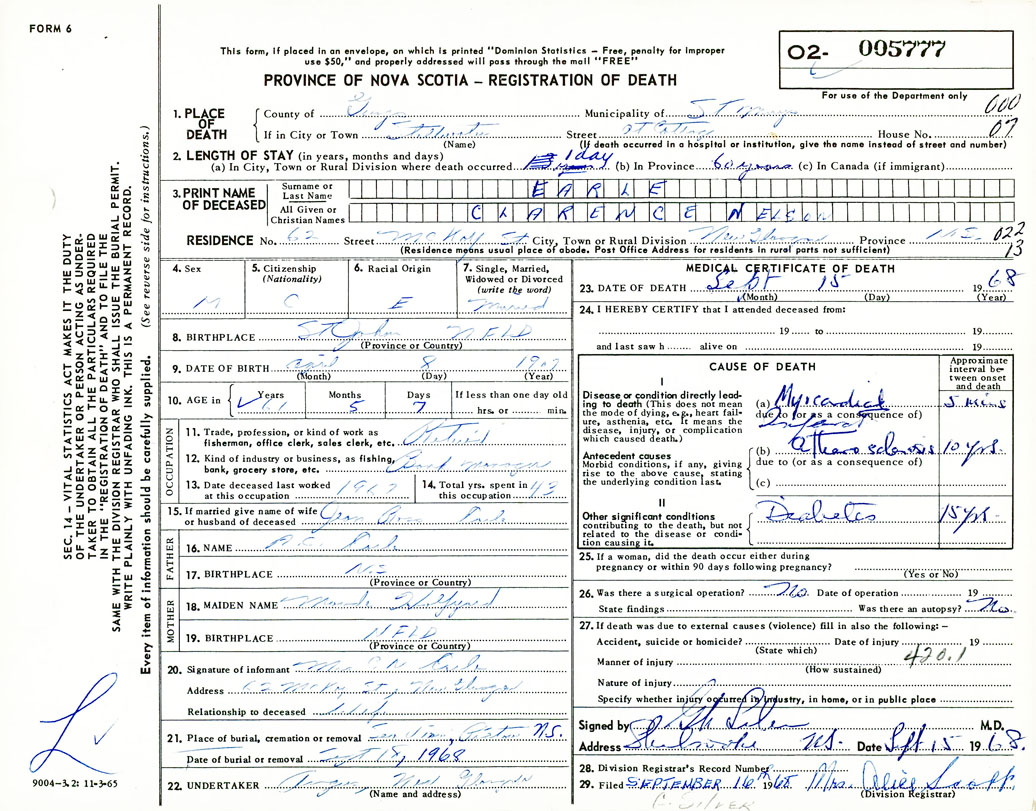 FORM 6
This form, if placed in an envelope, on which is printed "Dominion Statistics – Free, penalty for improper
use $50," and properly addressed will pass through the mail "FREE"
PROVINCE OF NOVA SCOTIA – REGISTRATION OF DEATH
O2- 005777
For use of the Department only
SEC. 14 – VITAL STATISTICS ACT MAKES IT THE DUTY
OF THE UNDERTAKER OR PERSON ACTING AS UNDER-
TAKER TO OBTAIN ALL THE PARTICULARS REQUIRED
IN THE "REGISTRATION OF DEATH" AND TO FILE THE
SAME WITH THE DIVISION REGISTRAR WHO SHALL ISSUE THE BURIAL PERMIT.
WRITE PLAINLY WITH UNFADING INK. THIS IS A PERMANENT RECORD.
Every item of information should be carefully supplied. (See reverse side for instructions.)
9004-3.2: 11-3-65
1. PLACE OF DEATH
County of Municipality of St Mary 000
If in City or Town Stillwater Street at Cottage House No. 07
(Name) (If death occurred in a hospital or institution, give the name instead of street and number)
2. LENGTH OF STAY (in years, months and days)
(a) In City, Town or Rural Division where death occurred 1 day (b) In Province 60 years (c) In Canada (if immigrant)
3. PRINT NAME OF DECEASED
Surname or Last Name EARLE
All Given or Christian Names CLARENCE NELSON
RESIDENCE No. 62 Street McKay St City, Town or Rural Division New Glasgow Province N.S. 022
(Residence means usual place of abode. Post Office Address for residents in rural parts not sufficient) 13
4. Sex M
5. Citizenship (Nationality) C
6. Racial Origin E
7. Single, Married, Widowed or Divorced (write the word) Married
8. BIRTHPLACE St John NFLD
(Province or Country)
9. DATE OF BIRTH April 8 1907
(Month) (Day) (Year)
10. AGE in Years 61 Months 5 Days 7 If less than one day old hrs. or min.
OCCUPATION
11. Trade, profession, or kind of work as
fisherman, office clerk, sales clerk, etc. Retired
12. Kind of industry or business, as fishing,
bank, grocery store, etc. Bank manager
13. Date deceased last worked
at this occupation 1967
14. Total yrs. spent in
this occupation 43
15. If married give name of wife
or husband of deceased Jean Ross Earle
FATHER
16. NAME Earle
17. BIRTHPLACE
(Province or Country)
MOTHER
18. MAIDEN NAME Maude
19. BIRTHPLACE NFLD
(Province or Country)
20. Signature of informant Mrs C N Earle
Address 62 McKay St, New Glasgow
Relationship to deceased
21. Place of burial, cremation or removal Pictou N.S.
Date of burial or removal Sept 18, 1968
22. UNDERTAKER New Glasgow
(Name and address)
MEDICAL CERTIFICATE OF DEATH
23. DATE OF DEATH Sept 15 1968
(Month) (Day) (Year)
24. I HEREBY CERTIFY that I attended deceased from:
19 to 19
and last saw h alive on 19
CAUSE OF DEATH
Approximate interval between onset and death
I
Disease or condition directly lead-
ing to death (This does not mean
the mode of dying, e.g., heart fail-
ure, asthenia, etc. It means the
disease, injury, or complication
which caused death.)
(a) Myocardial 5 mins
due to (or as a consequence of)
Infarct
Antecedent causes
Morbid conditions, if any, giving
rise to the above cause, stating
the underlying condition last.
(b) atherosclerosis 10 yrs.
due to (or as a consequence of)
(c)
II
Other significant conditions
contributing to the death, but not
related to the disease or condi-
tion causing it.
Diabetes 15 yrs
25. If a woman, did the death occur either during
pregnancy or within 90 days following pregnancy?
(Yes or No)
26. Was there a surgical operation? No. Date of operation 19
State findings Was there an autopsy? No.
27. If death was due to external causes (violence) fill in also the following: –
Accident, suicide or homicide? Date of injury 19
(State which) 420.1
Manner of injury
(How sustained)
Nature of injury
Specify whether injury occurred in industry, in home, or in public place
Signed by M.D.
Address Sherbrooke NS. Date Sept 15 1968.
28. Division Registrar's Record Number
29. Filed SEPTEMBER 16th 1968 Mrs. Alice Scott
(Division Registrar)
SILVER